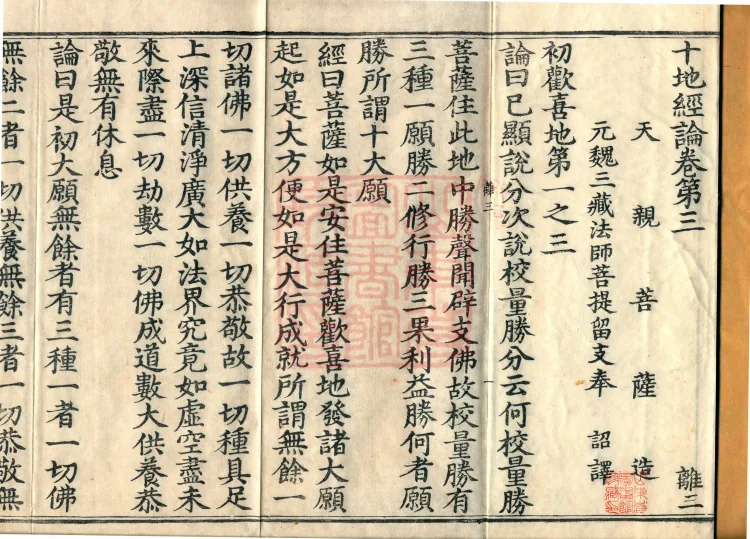 十地經論卷第三 離三
天親菩薩造
元魏三藏法師菩提留支奉 詔譯
初歡喜地第一之三
論曰已顯說分次說校量勝分云何校量勝
菩薩住此地中勝聲聞辟支佛故校量勝有
離三 一
三種一願勝二修行勝三果利益勝何者願
勝所謂十大願
經曰菩薩如是安住菩薩歡喜地發諸大願
起如是大方便如是大行成就所謂無餘一
切諸佛一切供養一切恭敬故一切種具足
上深信清淨廣大如法界究竟如虛空盡未
來際盡一切劫數一切佛成道數大供養恭
敬無有休息
論曰是初大願無餘者有三種一者一切佛
無餘二者一切供養無餘三者一切恭敬無